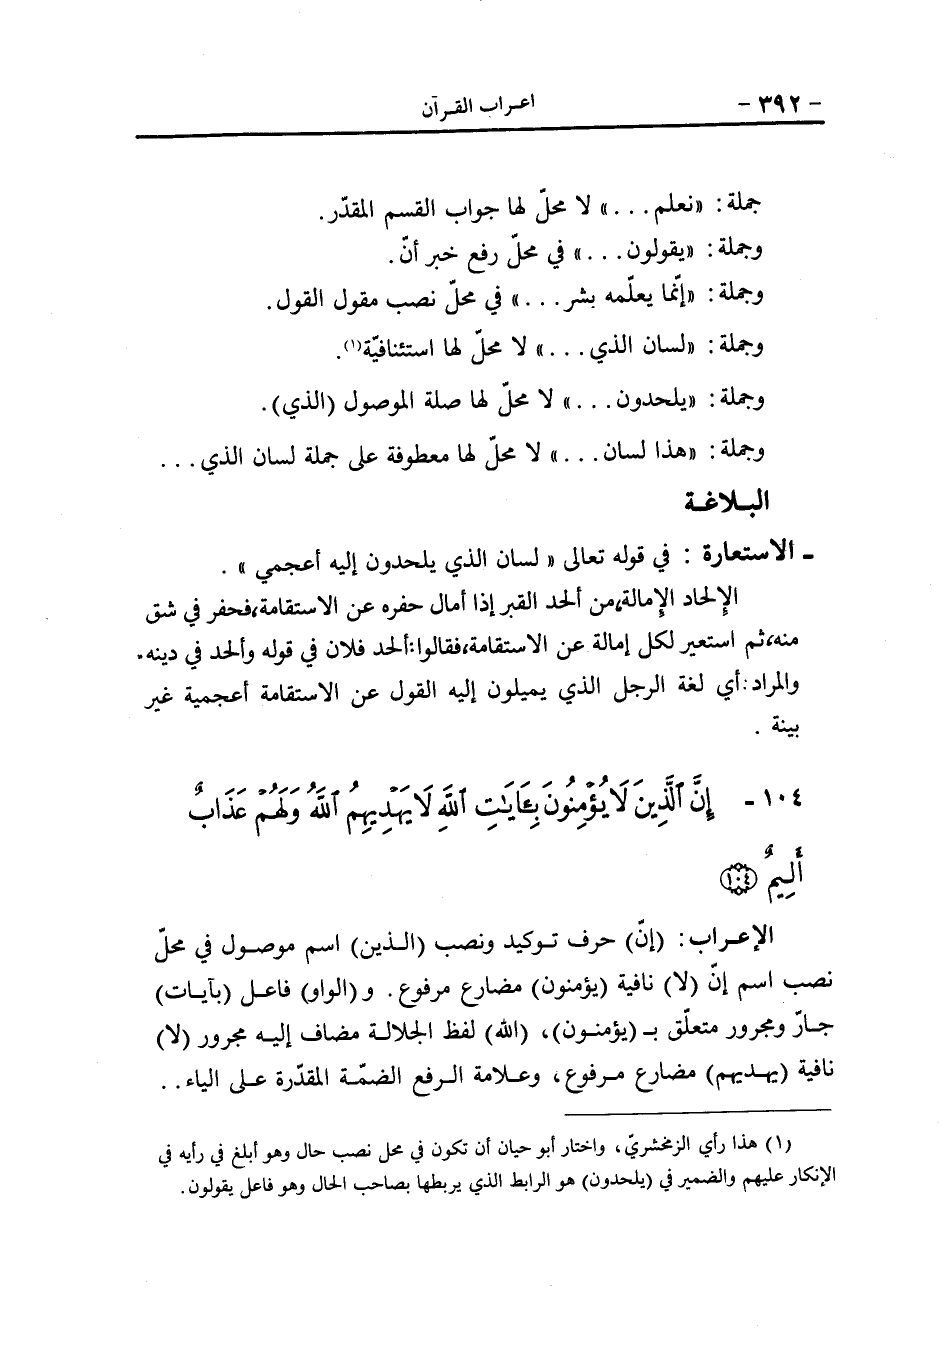 - ٣٩٢ - اعراب القرآن
جملة: «نعلم...» لا محلّ لها جواب القسم المقدّر.
وجملة: «يقولون...» في محلّ رفع خبر أنّ.
وجملة: «إنّما يعلّمه بشر...» في محلّ نصب مقول القول.
وجملة: «لسان الذي...» لا محلّ لها استئنافيّة(١).
وجملة: «يلحدون...» لا محلّ لها صلة الموصول (الذي).
وجملة: «هذا لسان...» لا محلّ لها معطوفة على جملة لسان الذي...
البلاغة
ـ الاستعارة : في قوله تعالى « لسان الذي يلحدون إليه أعجمي » .
الإلحاد الإمالة،من ألحد القبر إذا أمال حفره عن الاستقامة،فحفر في شق
منه،ثم استعير لكل إمالة عن الاستقامة،فقالوا:ألحد فلان في قوله وألحد في دينه.
والمراد:أي لغة الرجل الذي يميلون إليه القول عن الاستقامة أعجمية غير
بينة .
١٠٤ - إِنَّ ٱلَّذِينَ لَا يُؤْمِنُونَ بِـَٔايَـٰتِ ٱللَّهِ لَا يَهْدِيهِمُ ٱللَّهُ وَلَهُمْ عَذَابٌ
أَلِيمٌ ١٠٤
الإعراب: (إنّ) حرف توكيد ونصب (الذين) اسم موصول في محلّ
نصب اسم إنّ (لا) نافية (يؤمنون) مضارع مرفوع. و(الواو) فاعل (بآيات)
جارّ ومجرور متعلّق بـ (يؤمنون)، (الله) لفظ الجلالة مضاف إليه مجرور (لا)
نافية (يهديهم) مضارع مرفوع، وعلامة الرفع الضمّة المقدّرة على الياء..
(١) هذا رأي الزمخشريّ، واختار أبو حيان أن تكون في محل نصب حال وهو أبلغ في رأيه في
الإنكار عليهم والضمير في (يلحدون) هو الرابط الذي يربطها بصاحب الحال وهو فاعل يقولون.